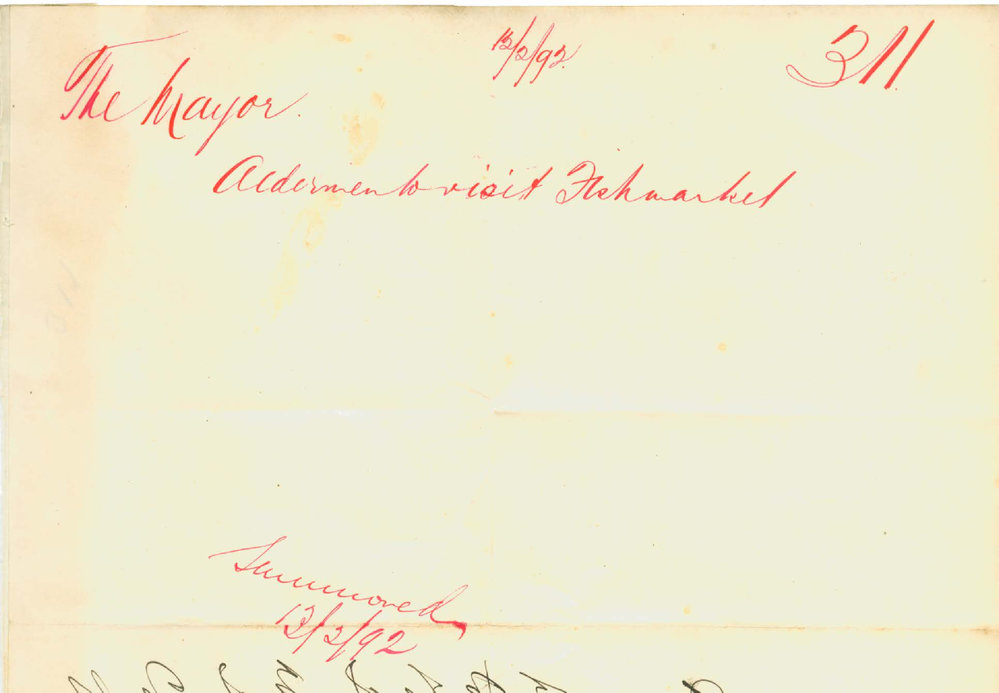 12/2/92. 311
The Mayor.
Aldermen to visit Fishmarket
Summoned
13/2/92